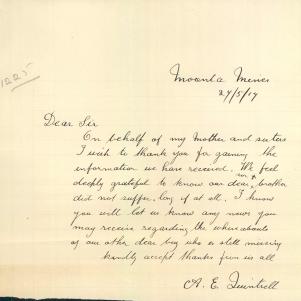 1225
Moonta Mines
27/5/17
Dear Sir
On behalf of my Mother and sisters
I wish to thank you for gaining the
information we have received. We feel
deeply grateful to know our dear brother
did not suffer long if at all. I know
you will let us know any news you
may receive regarding the whereabouts
of our other dear boy who is still missing
kindly accept thanks from us all
A. E. Quintrell